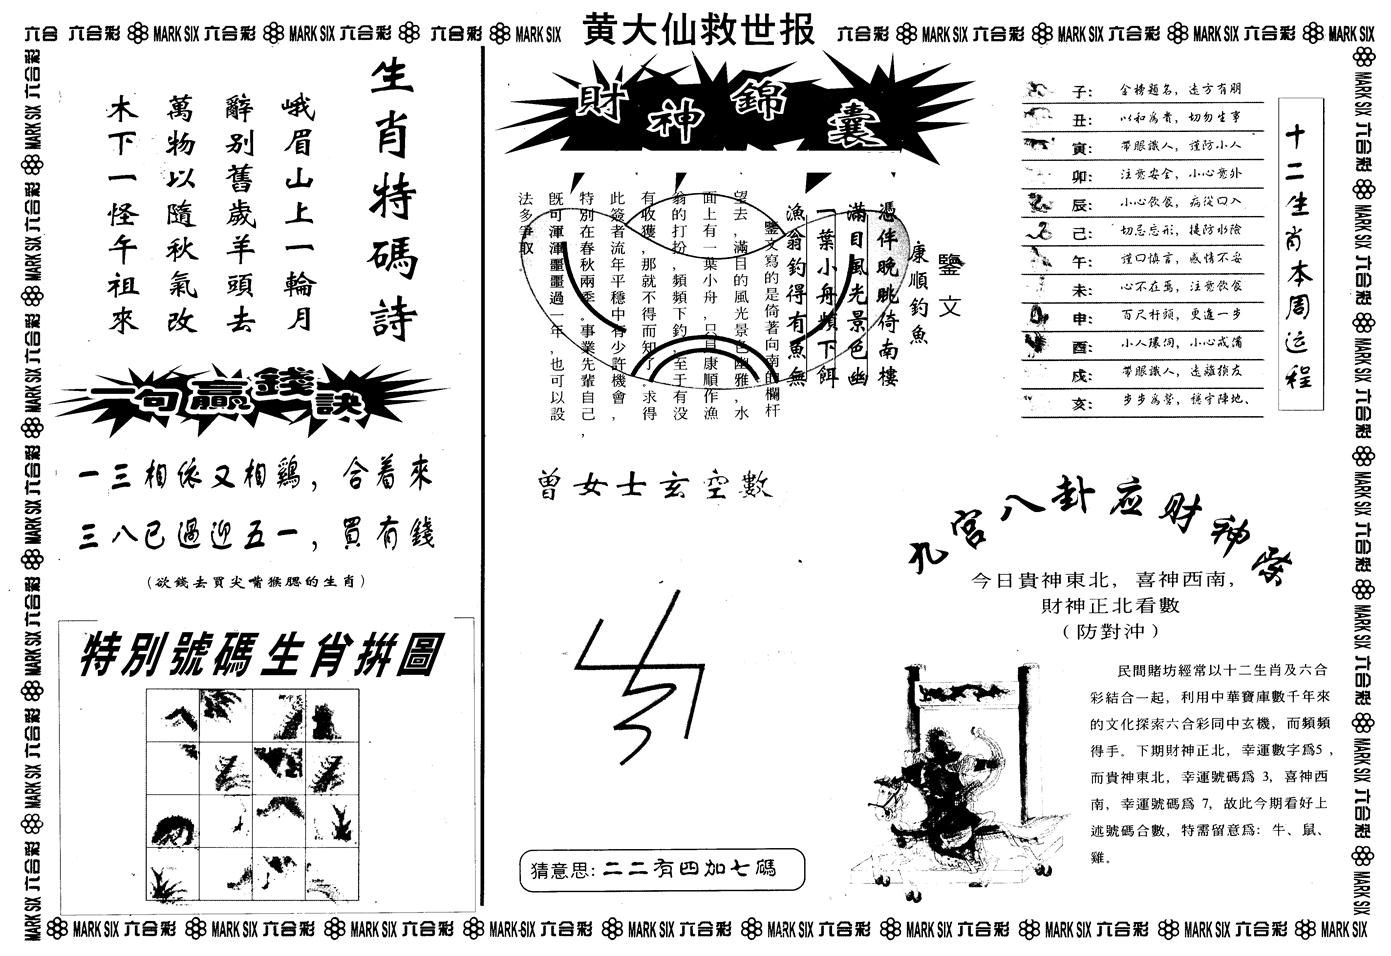 黄大仙救世报
六合彩 MARK SIX 六合彩 MARK SIX 六合彩
生肖特碼詩
峨眉山上一輪月
辭別舊歲羊頭去
萬物以隨秋氣改
木下一怪午祖來
一句贏錢訣
一三相依又相鷄，合着來
三八已過迎五一，買有錢
(欲錢去買尖嘴猴腮的生肖)
特別號碼生肖拼圖
財神錦囊
鑒文
康順釣魚
憑伴晚眺倚南樓
滿目風光景色幽
一葉小舟頻下餌
漁翁釣得有魚無
鑒文寫的是倚著向南的欄杆
望去,滿目的風光景色幽雅,水
面上有一葉小舟,只見康順作漁
翁的打扮,頻頻下釣,至于有没
有收獲,那就不得而知了。求得
此簽者流年平穩中有少許機會,
特別在春秋兩季。事業先輩自己,
既可渾渾噩噩過一年,也可以設
法多爭取.
曾女士玄空數
猜意思:二二有四加七碼
十二生肖本周运程
子: 金榜題名，遠方有朋
丑: 以和爲貴，切勿生事
寅: 帶眼識人，謹防小人
卯: 注意安全，小心意外
辰: 小心飲食，病從口入
己: 切忌忘形，提防水險
午: 謹口慎言，感情不妥
未: 心不在焉，注意飲食
申: 百尺杆頭，更進一步
酉: 小人環伺，小心戒備
戍: 帶眼識人，遠離損友
亥: 步步爲營，穩守陣地、
九宮八卦应财神柴
今日貴神東北，喜神西南，
財神正北看數
(防對沖)
民間賭坊經常以十二生肖及六合
彩結合一起，利用中華寶庫數千年來
的文化探索六合彩同中玄機，而頻頻
得手。下期財神正北，幸運數字爲5，
而貴神東北，幸運號碼爲 3，喜神西
南，幸運號碼爲 7，故此今期看好上
述號碼合數，特需留意爲：牛、鼠、
雞。